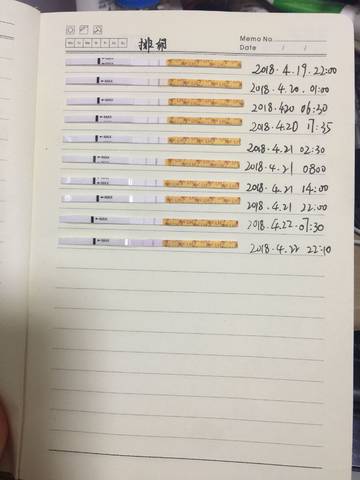 排卵
Memo No.
Mo Tu We Th Fr Sa Su
Date / /
2018.4.19.22:00
2018.4.20.01:00
2018.420 06:30
2018.4.20 17:35
2018.4.21 02:30
2018.4.21 0800
2018.4.21 14:00
2018.4.21 22:00
2018.4.22.07:30
2018.4.22 22:10